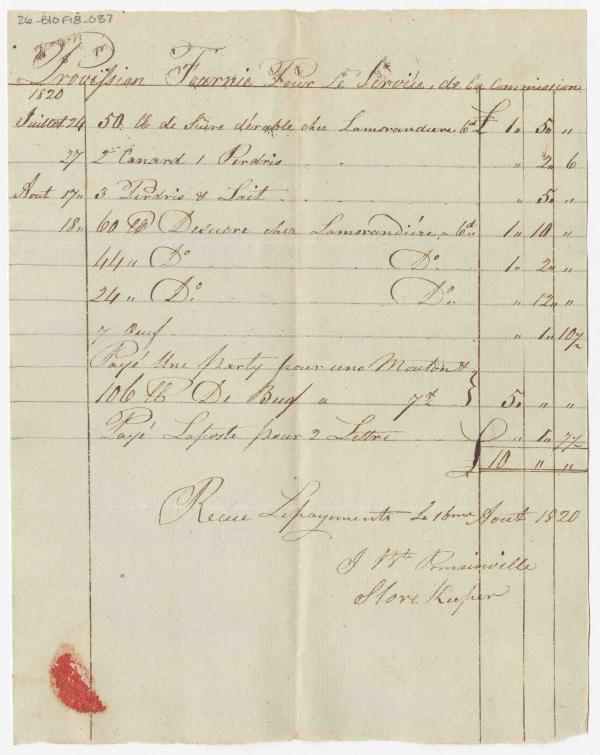 26-B10F18-037
Provission Fournie Pour Le Service, de La Commission
1820
Juillet 24 50 lb de Sucre dérable chez Lamorandiere 6d £ 1 " 5 " "
27 2 Canard 1 Perdris " 2 " 6
Aout 17 " 3 Perdris & Lait " 5 "
18 " 60 lb Desucre chez Lamorandiére 6d " 1 " 10 "
44 " Do Do 1 " 2 " "
24 " Do Do " " 12 " "
7 Oeuf " 1 " 10½
Payé Une party pour une Mouton &
106 lb De Buf a 7d } 5 " " "
Payé Laposte pour 2 Lettre " 1 " 7½
£ 10 " "
Recue Lepayements Le 16me Aout 1820
J Bte Romainville
Store Keeper